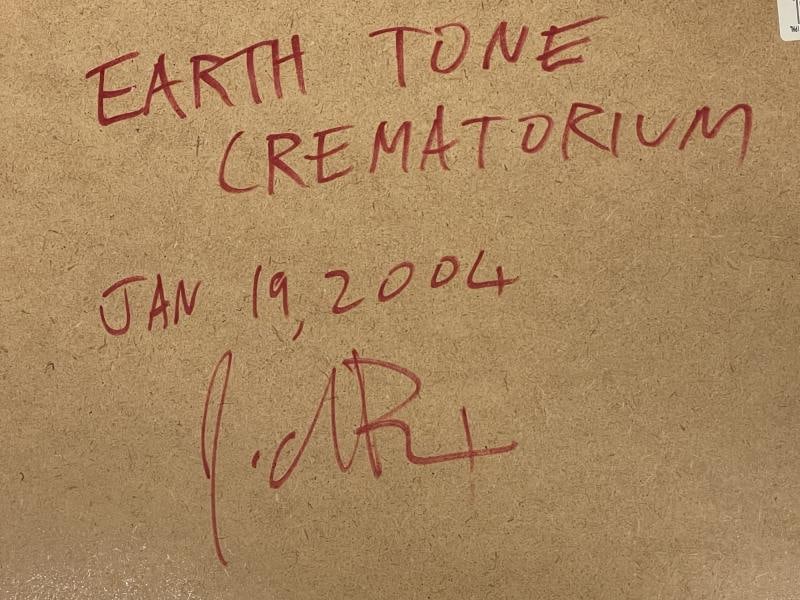 EARTH TONE
CREMATORIUM
JAN 19, 2004